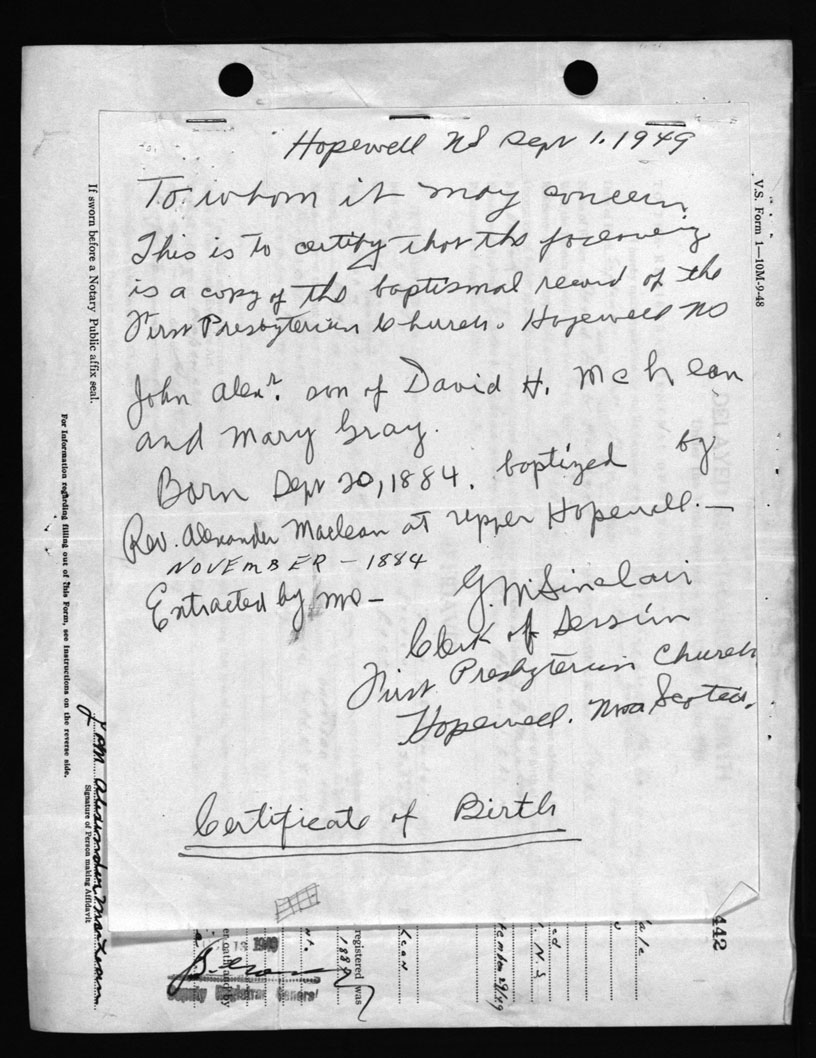 Hopewell NS Sept 1. 1949
To whom it may concern
This is to certify that the following
is a copy of the baptismal record of the
First Presbyterian Church. Hopewell NS
John Alexr. son of David H. McLean
and Mary Gray.
Born Sept 20, 1884. baptized by
Rev. Alexander Maclean at upper Hopewell. —
NOVEMBER - 1884
Extracted by me -
G. M Sinclair
Clerk of Session
First Presbyterian Church
Hopewell. Nova Scotia.
Certificate of Birth
V.S. Form 1—10M-9-48
If sworn before a Notary Public affix seal.
For Information regarding filling out of this Form, see Instructions on the reverse side.
John Alexander
Signature of Person making Affidavit
442
registered was
1884
Deputy Registrar General